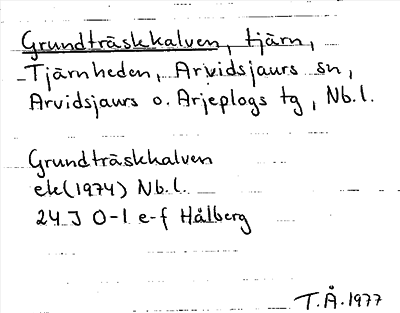 Grundträskkalven, tjärn,
Tjärnheden, Arvidsjaurs sn,
Arvidsjaurs o. Arjeplogs tg, Nb.l.
Grundträskkalven
ek(1974) Nb.l.
24 J 0-1 e-f Hålberg
T.Å.1977